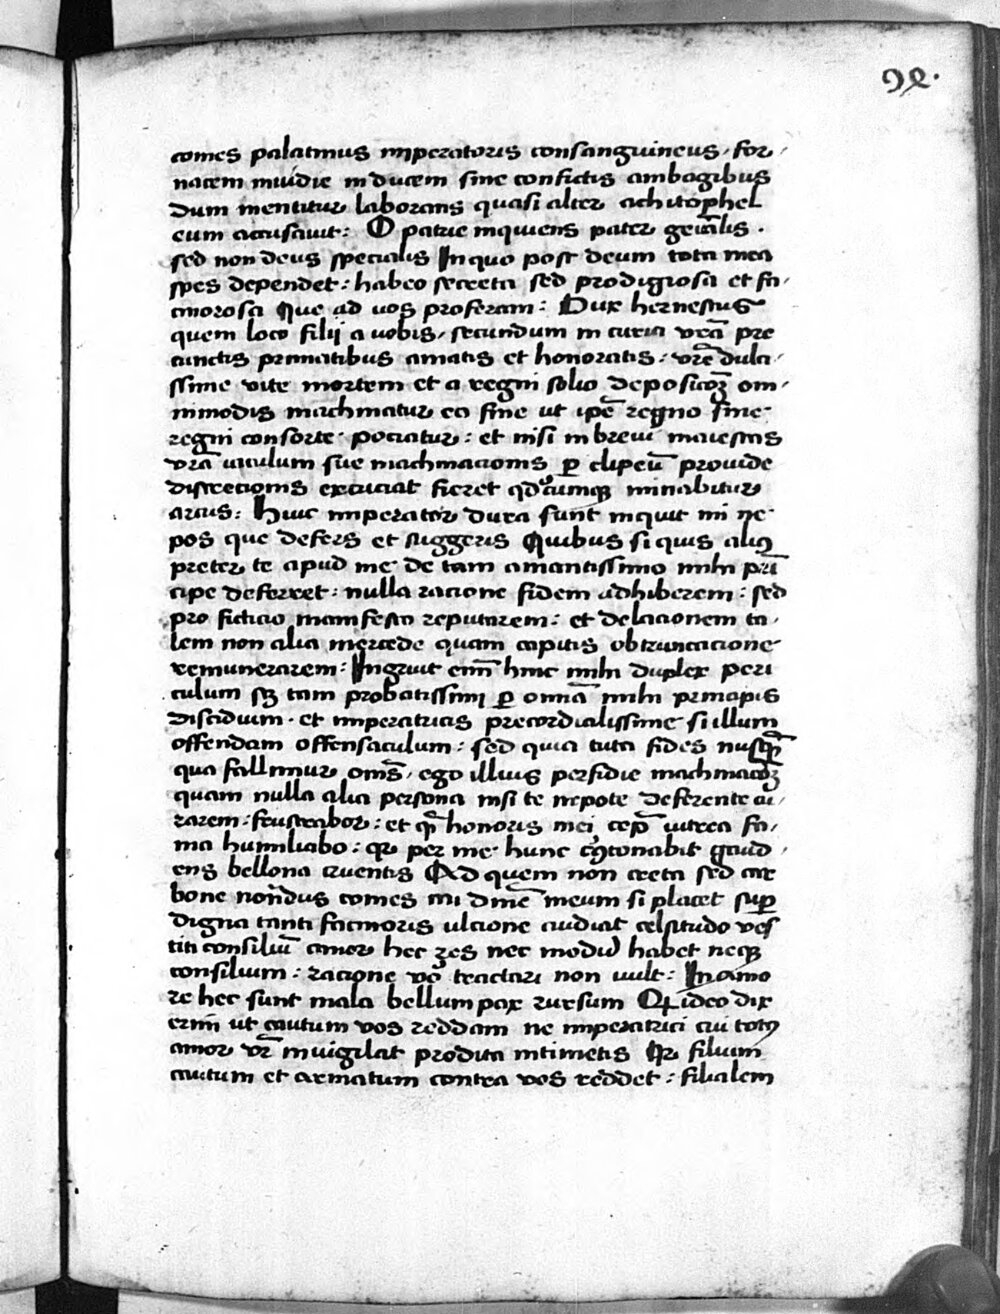 92.
comes palatinus imperatoris consanguineus, for,
nacem inuidie in ducem sine confictis ambagibus
dum mentitur laborans quasi alter achitophel
eum accusauit: O patrie inquiens pater geñalis.
sed non deus specialis In quo post deum tota mea
spes dependet: habeo secreta sed prodigiosa et fa,
cinorosa Que ad uos proferam: Dux hernestus
quem loco filij a uobis, secundum in curia vrã pre
cunctis primatibus amatis et honoratis: vrẽ dulci,
ssime vite mortem et a regni solio deposicoꝫ om,
nimodis machinatur ea fine ut ip̃e regno sine
regni consorte pociatur: et nisi in breui maiestas
vrã iaculum sue machinacionis ꝑ clipeũ prouide
discrecionis excuciat fieret qđcumqꝫ minabitur
arcus: Huic imperator dura sunt inquit mi ne
pos que defers et suggeris Quibus si quis aliꝯ
preter te apud me de tam amantissimo mihi prĩ
cipe deferret: nulla racione fidem adhiberem: sed
pro ficticio manifesto reputarem: et delacionem ta,
lem non alia mercede quam capitis obtruncacione
remunerarem: Ingruit em̃ hinc mihi duplex peri
culum sꝫ tam probatissimi ꝑ omiã mihi principis
discidium. et imperatricis precordialissime si illum
offendam offensaculum: sed quia tuta fides nusꝗ̃
qua fallimur om̃s, ego illius perfidie machinacoꝫ
quam nulla alia persona nisi te nepote deferente cu,
rarem: frustrabor: et q̃ honoris mei cep̃ uitrea fa,
ma humiliabo: qꝛ per me hunc ꝯtonabit gaud,
ens bellona cruentis Ad quem non creta sed car
bone not̃andus comes mi dñe meum si placet suꝑ
digna tanti facinoris ulcione audiat celsitudo ves
tra consiliũ amor hec res nec modũ habet neqꝫ
consilium: racione vo̊ tractari non uult: In amo
re hec sunt mala bellum pax rursum Qꝛ ideo dix
erim ut cautum vos reddam ne imperatrici cui totꝯ
amor vr̃ inuigilat prodita intimetis Qꝛ filium
cautum et armatum contra vos reddet: filialem